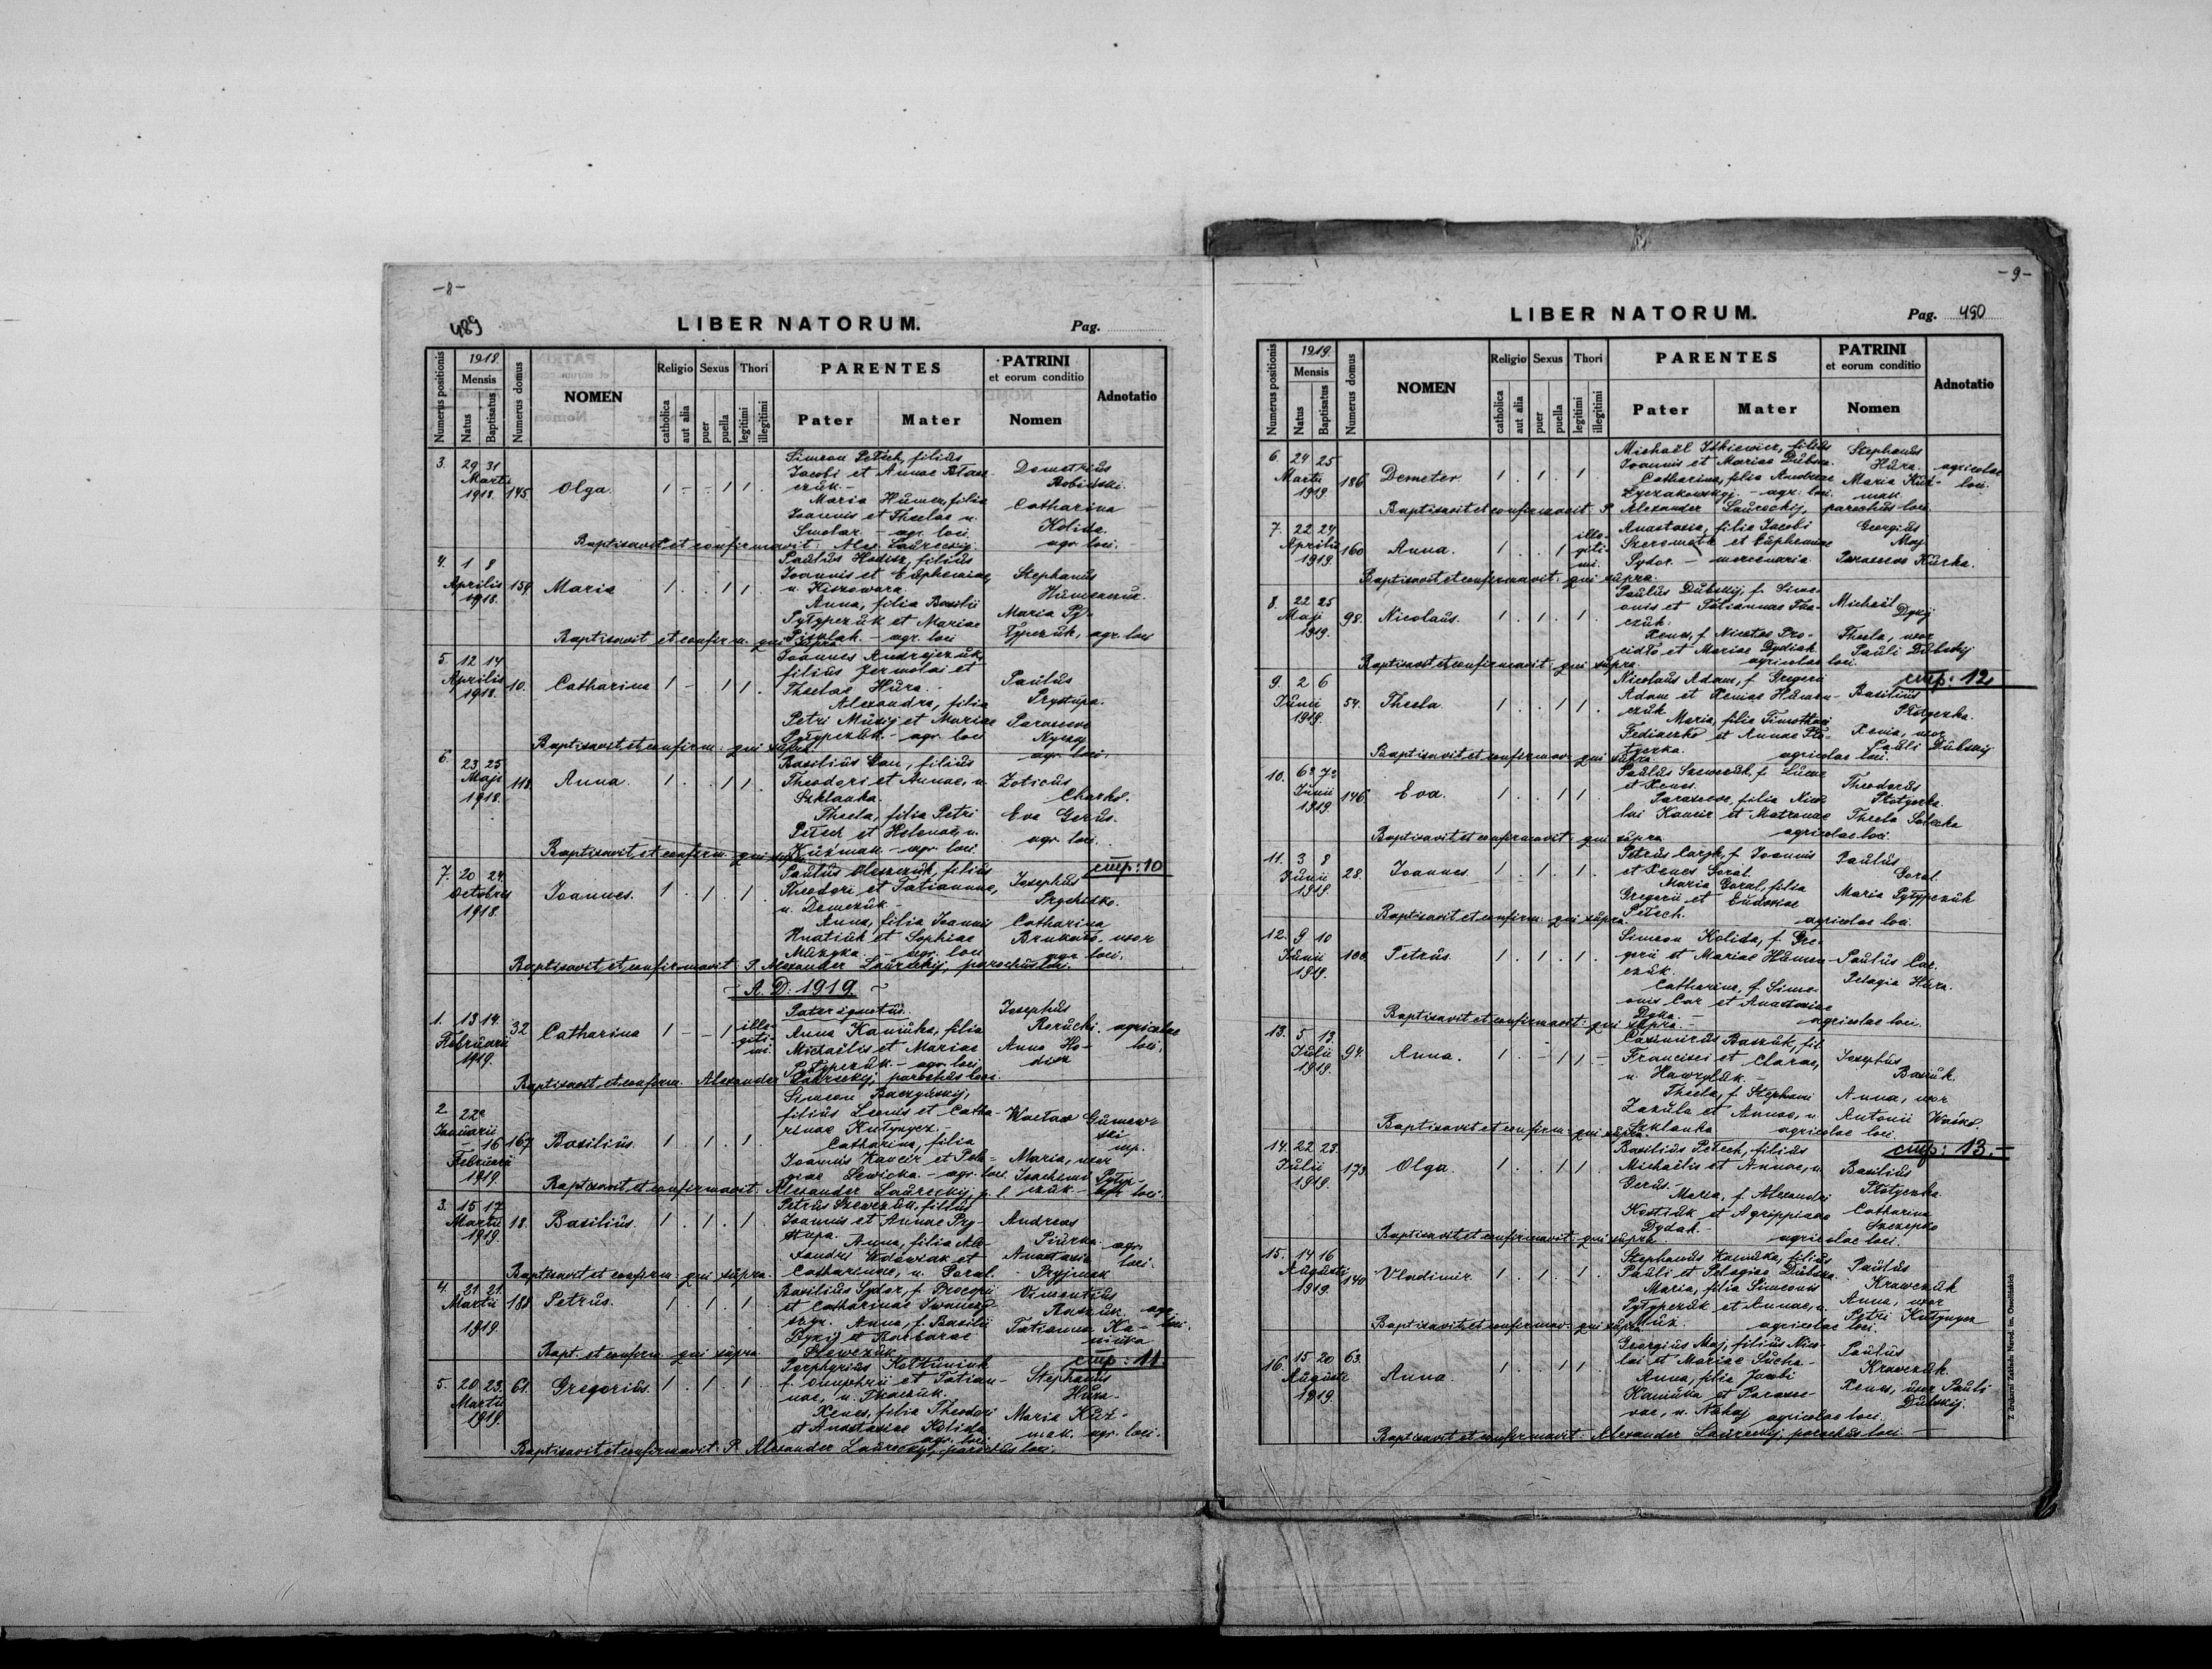 -8-
489
LIBER NATORUM.
Pag.
Numerus positionis
1918.
Mensis
Natus
Baptisatus
Numerus domus
NOMEN
Religio
catholica
aut alia
Sexus
puer
puella
Thori
legitimi
illegitimi
PARENTES
Pater
Mater
PATRINI
et eorum conditio
Nomen
Adnotatio
3. 29 31 Martii 1918. 145 Olga.
Simeon Petech, filius
Jacobi et Annae
czuk-
Maria Humen, filia
Joannis et Theclae n.
Smolar - agr. loci.
Demetrius
Catharina
Kolida
agr. loci.
Baptisavit et confirmavit: Alex. Laureckij.
4. 1 8 Aprilis 1918. 159 Maria
Paulus Hodisz, filius
Joannis et Euphemiae,
n. Kiszowara.
Anna, filia Basilii
Pytypczuk et Mariae
- agr. loci
Stephanus
Humeniuk.
Maria Py-
typczuk, agr. loci
Baptisavit et confirm. qui supra
5. 12 14 Aprilis 1918. 10. Catharina
Joannes Andrejczuk,
filius Jermolai et
Theclae Hura.-
Alexandra, filia
Petri Musij et Mariae
Pytypczuk. - agr. loci
Paulus
Prystupa.
Parasceve
agr. loci.
Baptisavit et confirm: qui supra
6. 23 25 Maji 1918. 118 Anna.
Basilius Gau, filius
Theodori et Annae, n.
Szklanka.
Thecla, filia Petri
Petech et Helenae, n.
Kuźmak. - agr. loci
Zoticus
Charko.
Eva Gerus.
agr. loci.
Baptisavit et confirm. qui supra
стр: 10
7. 20 24 Octobris 1918. Joannes.
Paulus Oleszczuk, filius
Theodori et Tatiannae,
n. Demczuk -
Anna, filia Joannis
Hnatiuk et Sophiae
Muzyka. - agr. loci
Josephus
Prychidko.
Catharina
uxor
agr. loci.
Baptisavit et confirmavit: P. Alexander Laureckij, parochus loci.
~ A. D: 1919 ~
1. 13 14. Februarii 1919. 32 Catharina illegitimi.
Pater ignotus.
Anna Kaniuka, filia
Michaëlis et Mariae
Pytypczuk. - agr. loci
Josephus
agricolae
Anna Ho-
loci.
disz
Baptisavit et confirm. Alexander Laureckij, parochus loci.
2. 22 Januarii - 16 Februarii 1919. 167 Basilius.
Simeon Baczyńskij,
filius Leonis et Catha-
rinae Kutynycz.-
Catharina, filia
Joannis Kancir et Pela-
giae Lewicka - agr. loci
Wacław
Maria, uxor
Joachimi Pytyp-
czuk - agr. loci.
Baptisavit et confirmavit: Alexander Laureckij, p. l.
3. 15 17 Martii 1919. 18. Basilius.
Petrus Szewczuk, filius
Joannis et Annae Pry-
stupa.
Anna, filia Ale-
xandri et
Catharinae, n. Goral.
Andreas
Piurka. agr.
Anastasia loci.
Pryjmak
Baptisavit et confirm. qui supra.
4. 21 21. Martii 1919. 181 Petrus.
Basilius Sydor, f. Procopii
et Catharinae
Anna, f. Basilii
Dykij et Barbarae
Szewczuk
agr.
Tatianna Ka- loci.
niuka
Bapt. et confirm. qui supra.
стр: 11.
5. 20 23. Martii 1919. 61. Gregorius.
Porphyrius Kottuniuk
f. Onuphrii et Tatian-
nae, n. Tkaczuk.
Xenes, filia Theodori
et Anastasiae Kolida
agr. loci.
Stephanus
Hura.
Maria Kuź-
mak. agr. loci.
Baptisavit et confirmavit: P. Alexander Laureckyj, parochus loci.
-9-
LIBER NATORUM.
Pag. 490
Numerus positionis
1919.
Mensis
Natus
Baptisatus
Numerus domus
NOMEN
Religio
catholica
aut alia
Sexus
puer
puella
Thori
legitimi
illegitimi
PARENTES
Pater
Mater
PATRINI
et eorum conditio
Nomen
Adnotatio
6. 24 25 Martii 1919. 186 Demeter.
Michaël Itkiewicz, filius
Joannis et Mariae Dubska.
Catharina, filia Andreae
Łyczakowskyj. - agr. loci.
Stephanus
Hura. agricolae
Maria Kuź- loci.
mak.
Baptisavit et confirmavit: P. Alexander Laureckij, parochus loci.
7. 22 24 Aprilis 1919. 160 Anna. illegitimi.
Anastasia, filia Jacobi
Szeremeta et Euphemiae
Sydor. - mercenaria
Georgius
Maj
Parasceve Kurka.
Baptisavit et confirmavit: qui supra.
8. 22 25 Maji 1919. 98. Nicolaus.
Paulus Dubskij, f. Sime-
onis et Tatiannae Tka-
czuk.
Xenes, f. Nicetae Pro-
cidło et Mariae Dydiak
agricolae loci.
Michaël
Dykij
Thecla, uxor
Pauli Dubskij
Baptisavit et confirmavit: qui supra.
стр: 12
9. 2 6 Junii 1919. 54. Thecla.
Nicolaus Adam, f. Gregorii
Adam et Xeniae Humen-
czuk.
Maria, filia Timothaei
Fediaczko et Annae Pło-
tyczka.
agricolae loci.
Basilius
Płotyczka.
Xenia, uxor
Pauli Dubskij
Baptisavit et confirmav: qui supra.
10. 6 7 Junii 1919. 146. Eva.
Paulus Szewczuk, f. Lucae
et Xenes.
Parasceve, filia Nico-
lai Kancir et Matronae
agricolae loci.
Theodorus
Płotyczka.
Thecla
Baptisavit et confirmavit: qui supra.
11. 3 8 Junii 1919. 28. Joannes.
Petrus Caryk, f. Joannis
et Xenes Goral.
Maria Goral, filia
Gregorii et Eudoxiae
Petech.
agricolae loci.
Paulus
Goral.
Maria Pytypczuk
Baptisavit et confirm: qui supra.
12. 9 10 Junii 1919. 100. Petrus.
Simeon Kolida, f. Gre-
gorii et Mariae Humen-
czuk.
Catharina, f. Sime-
onis Car et Anastasiae
Dyka.-
agricolae loci.
Paulus Car.
Pelagia Hura.
Baptisavit et confirmavit: qui supra.-
13. 5 13. Julii 1919. 94. Anna.
Casimirus Baszuk, fil.
Francisci et Clarae,
n. Hawryluk.-
Thecla, f. Stephani
Zazula et Annae, n.
Szklanka
agricolae loci
Josephus
Baszuk.
Anna, uxor
Antonii Waśko.
Baptisavit et confirm: qui supra.
стр: 13.-
14. 22 23. Julii 1919. 173. Olga.
Basilius Petech, filius
Michaëlis et Annae, n.
Gerus.-
Maria, f. Alexandri
Kostiuk et Agrippinae
Dydak.-
agricolae loci.
Basilius
Płotyczka.
Catharina
Szczepko
Baptisavit et confirmavit: qui supra.
15. 14 16 Augusti 1919. 140 Vladimir.
Stephanus Kaniuka, filius
Pauli et Pelagiae Dubska.
Maria, filia Simeonis
Pytypczuk et Annae, n.
agricolae loci.
Paulus
Krawczuk
Anna, uxor
Petri Kutynycz
Baptisavit et confirmav: qui supra.
16. 15 20 Augusti 1919. 63. Anna.
Georgius Maj, filius Nico-
lai et Mariae Sucha-
Anna, filia Jacobi
Kaniuka et Parasce-
vae, n. Nahaj
agricolae loci.
Paulus
Krawczuk.
Xenes, uxor Pauli
Dubskij.
Baptisavit et confirmavit: Alexander Laureckij parochus loci.-
Z drukarni Zakładu Narod. im. Ossolińskich